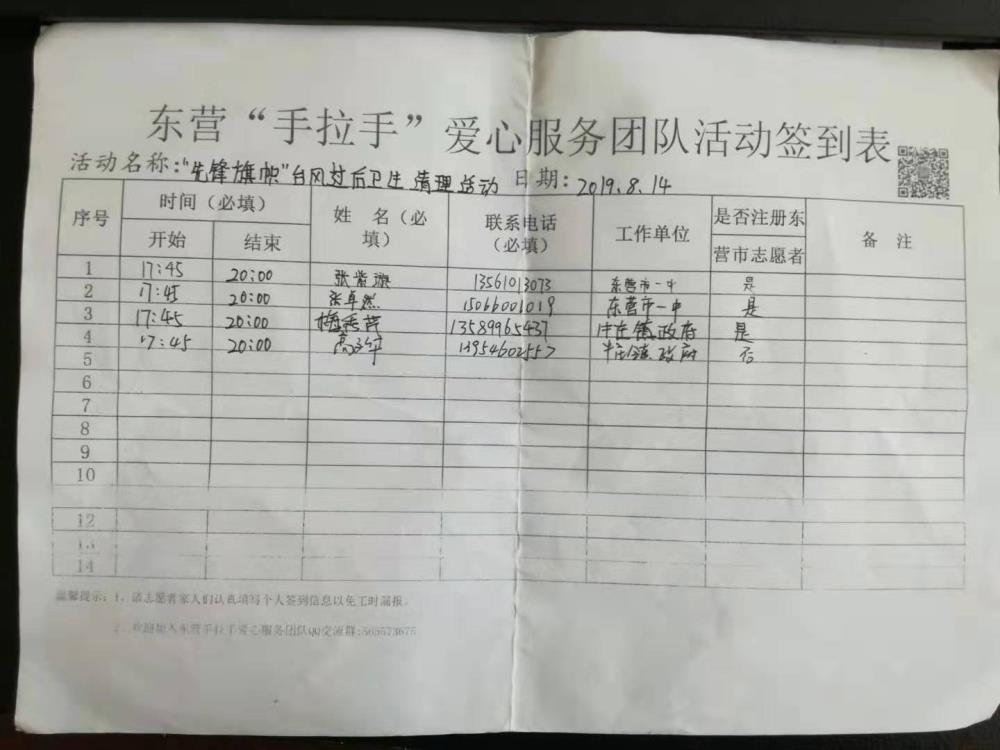 东营“手拉手”爱心服务团队活动签到表
活动名称:“先锋旗帜”台风过后卫生清理活动 日期:2019.8.14
序号 时间(必填) 姓 名(必填) 联系电话(必填) 工作单位 是否注册东营市志愿者 备 注
开始 结束
1 17:45 20:00 张紫璇 13561013073 东营市一中 是
2 17:45 20:00 张卓然 15066001019 东营市一中 是
3 17:45 20:00 梅秀芹 13589965437 牛庄镇政府 是
4 17:45 20:00 13954602557 牛庄镇政府 否
5
6
7
8
9
10
12
13
14
温馨提示:1、请志愿者家人们认真填写个人签到信息以免工时漏报。
2、欢迎加入东营手拉手爱心服务团队QQ交流群:565573675